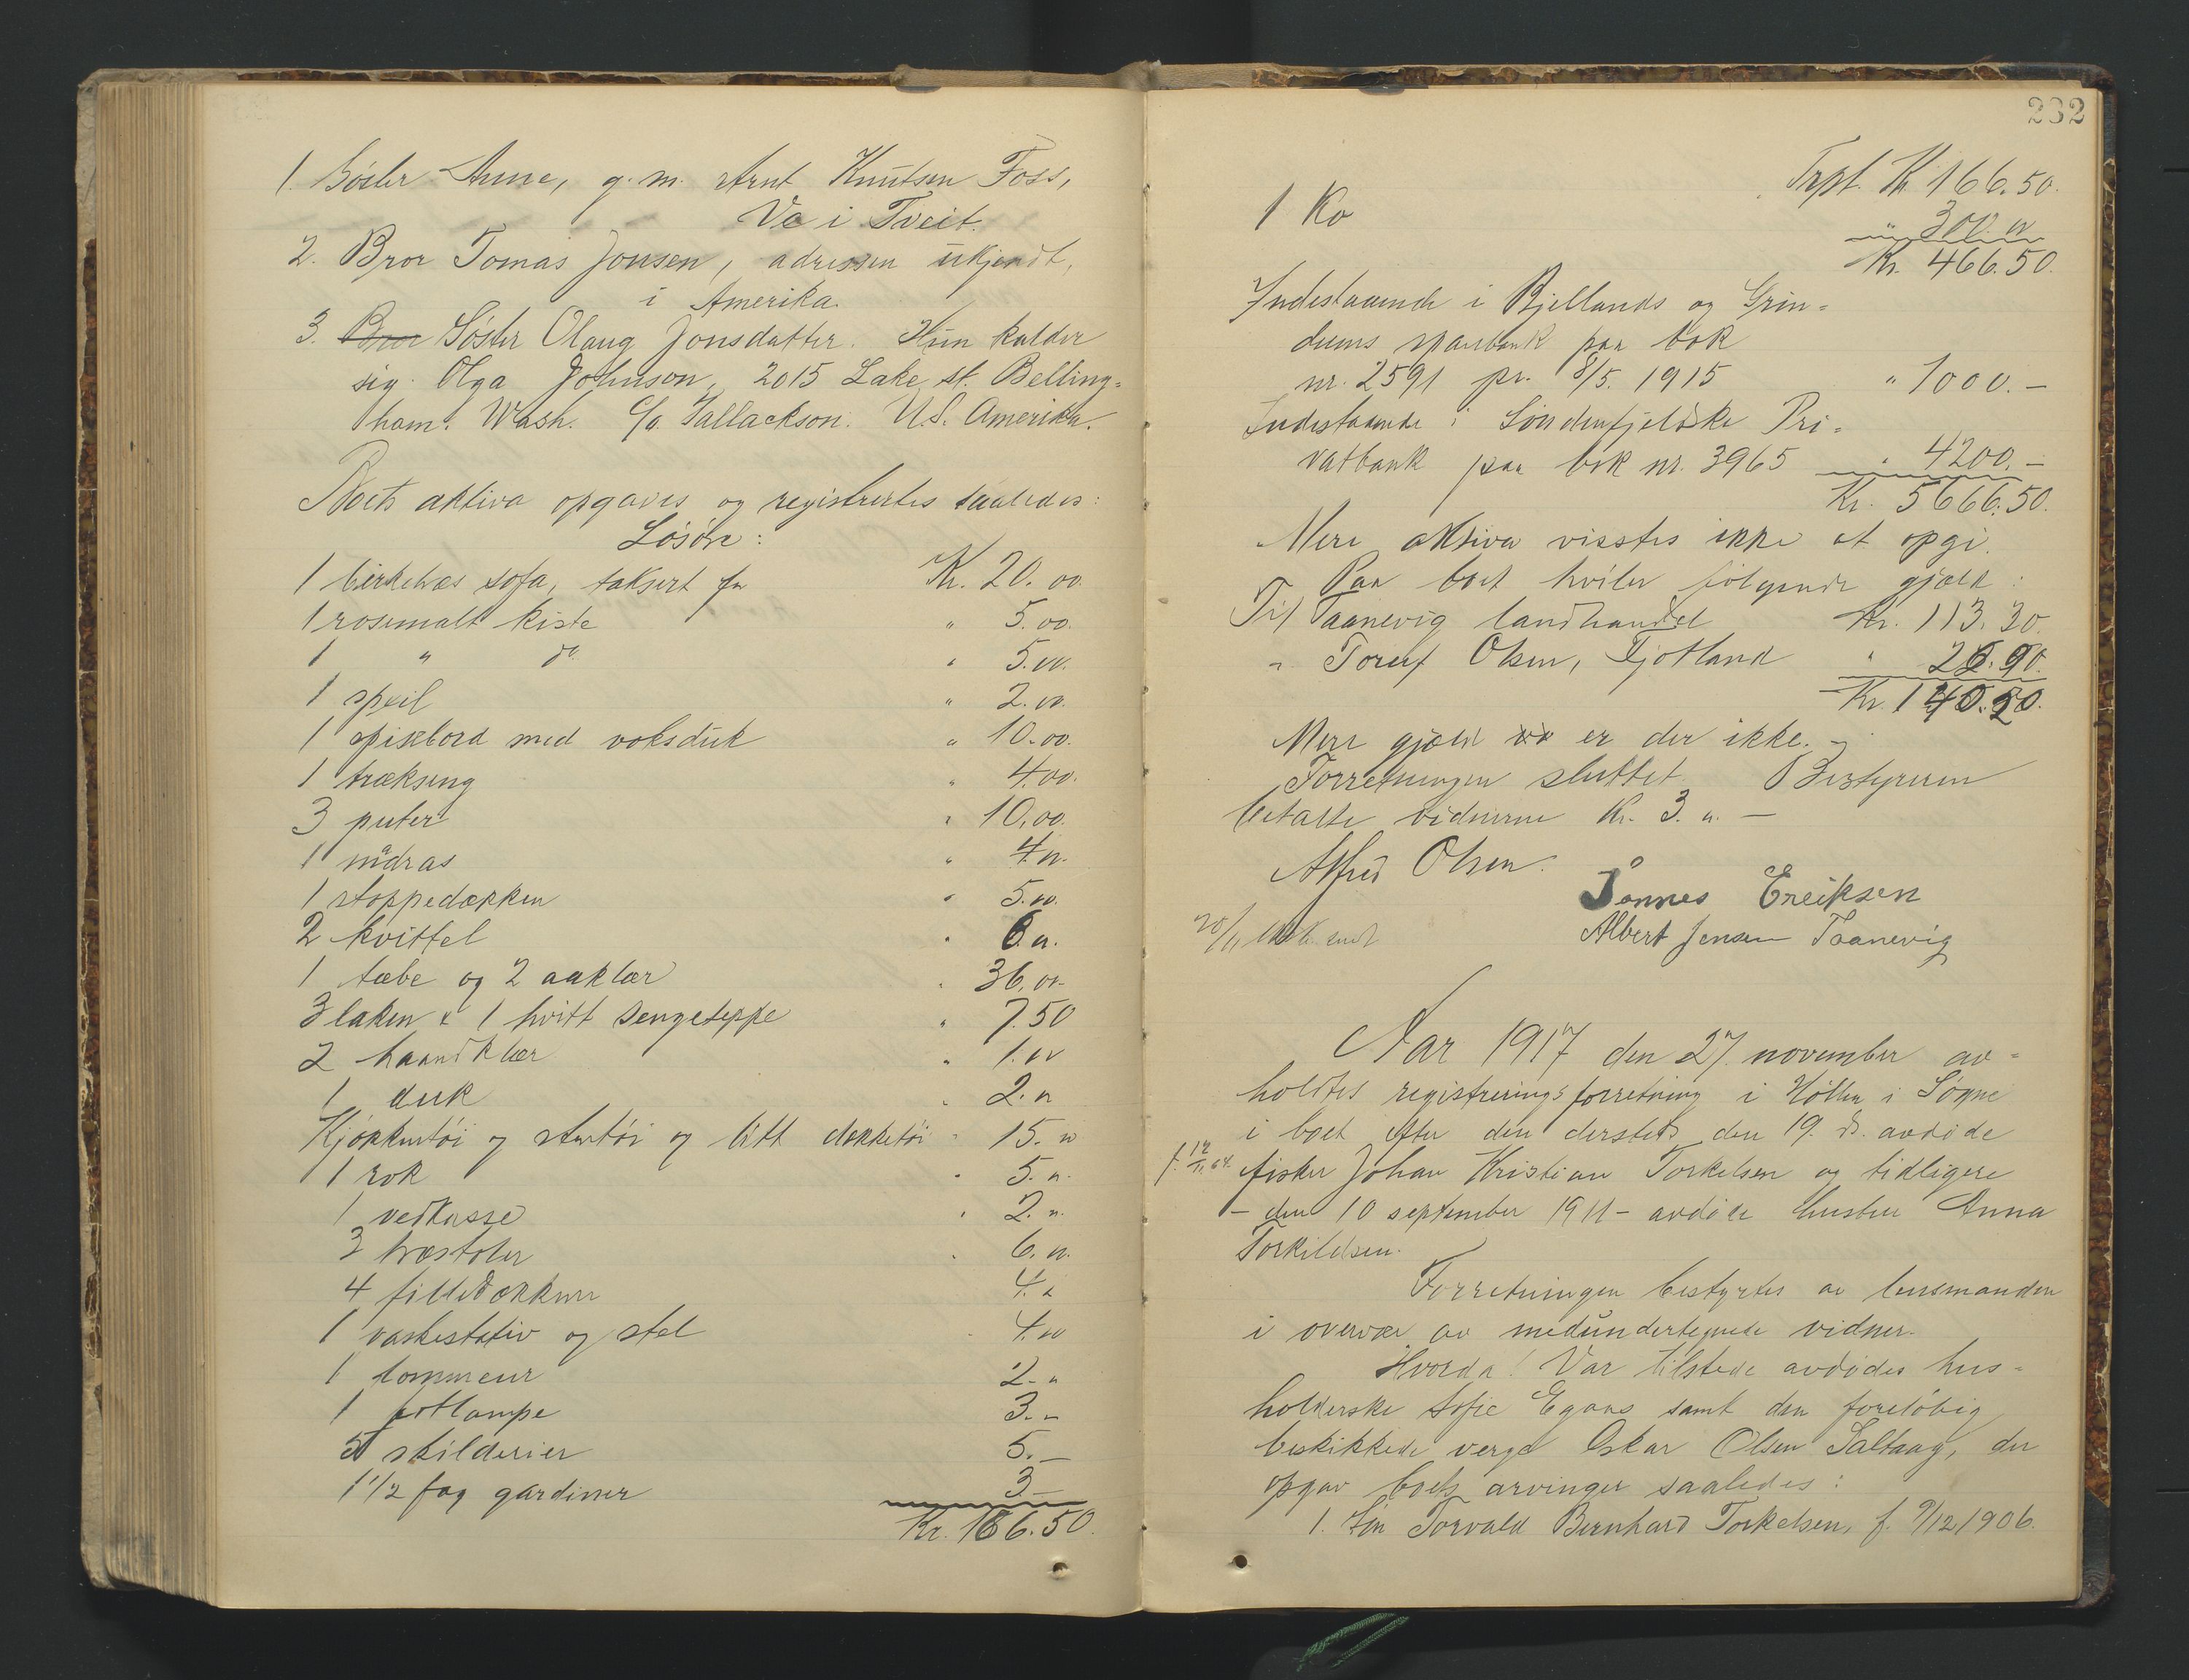 1. Søster Anne, g. m. Arnt Knutsen Foss,
Ve i Tveit.
2. Bror Tomas Jonsen, adressen ukjendt,
i Amerika.
3. Bror Søster Olaug Jonsdatter. Hun kalder
sig Olga Johnson, 2015 Lake st. Belling=
ham. Wash. c/o Tallackson. U.S. Amerika.
Boets aktiva opgaves og registrertes saaledes:
Løsøre:
1 birketræs sofa, taksert for Kr. 20.00
1 rosemalt kiste " 5.00.
1 " do " 5.00.
1 speil " 2.00.
1 spisebord med voksduk " 10.00.
1 trækseng " 4.00.
3 puter " 10.00.
1 madras " 4.00.
1 stoppedækken " 5.00.
2 kvittel " 6.00.
1 tæbe og 2 aaklær " 36.00.
3 laken & 1 hvitt sengeteppe " 7.50
2 haandklær " 1.00
1 duk " 2.00
Kjøkkentøi og stentøi og litt dækketøi " 15.00
1 rok " 5.00
1 vedkasse " 2.00
3 træstoler " 6.00.
4 filledækkener 4.00
1 vaskestativ og stel 4.00
1 lommeur 2.00
1 lampe 3.00
5 skilderier 5.—
1 1/2 fag gardiner 3—
Kr. 166.50.
232
Trpt. Kr. 166.50.
1 Ko " 300.00
Kr. 466.50.
Indestaaende i Bjellands og Grin=
dums sparebank paa bok
nr. 2591 pr. 8/5. 1915 " 1000.—
Indestaaende i Søndenfjeldske Pri=
vatbank paa bok nr. 3965 " 4200.—
Kr. 5666.50.
Mere aktiva visstes ikke at opgi.
Paa boet hviler følgende gjæld:
Til Taanevig landhandel Kr. 113.30.
" Toruf Olsen, Fjotland " 26.90.
Kr. 140.20.
Mere gjæld er der ikke.—
Forretningen sluttet. Bestyreren
betalte vidnerne Kr. 3.00.—
Alfred Olsen.
Tønnes Ereiksen
Albert Jensen Taanevig
Aar 1917 den 27. november av=
holdtes registreringsforretning i Høllen i Søgne
i boet efter den dersteds den 19. ds. avdøde
fisker Johan Kristian Torkelsen og tidligere
– den 10 september 1911 – avdøde hustru Anna
Torkildsen.
Forretningen bestyrtes av lensmanden
i overvær av medundertegnede vidner.
Hvorda! Var tilstede avdødes hus=
holderske Sofie Egaas samt den foreløbig
beskikkede verge Oskar Olsen Saltaag, der
opgav boets arvinger saaledes:
1. Søn Torvald Bernhard Torkelsen, f. 9/12 1906.